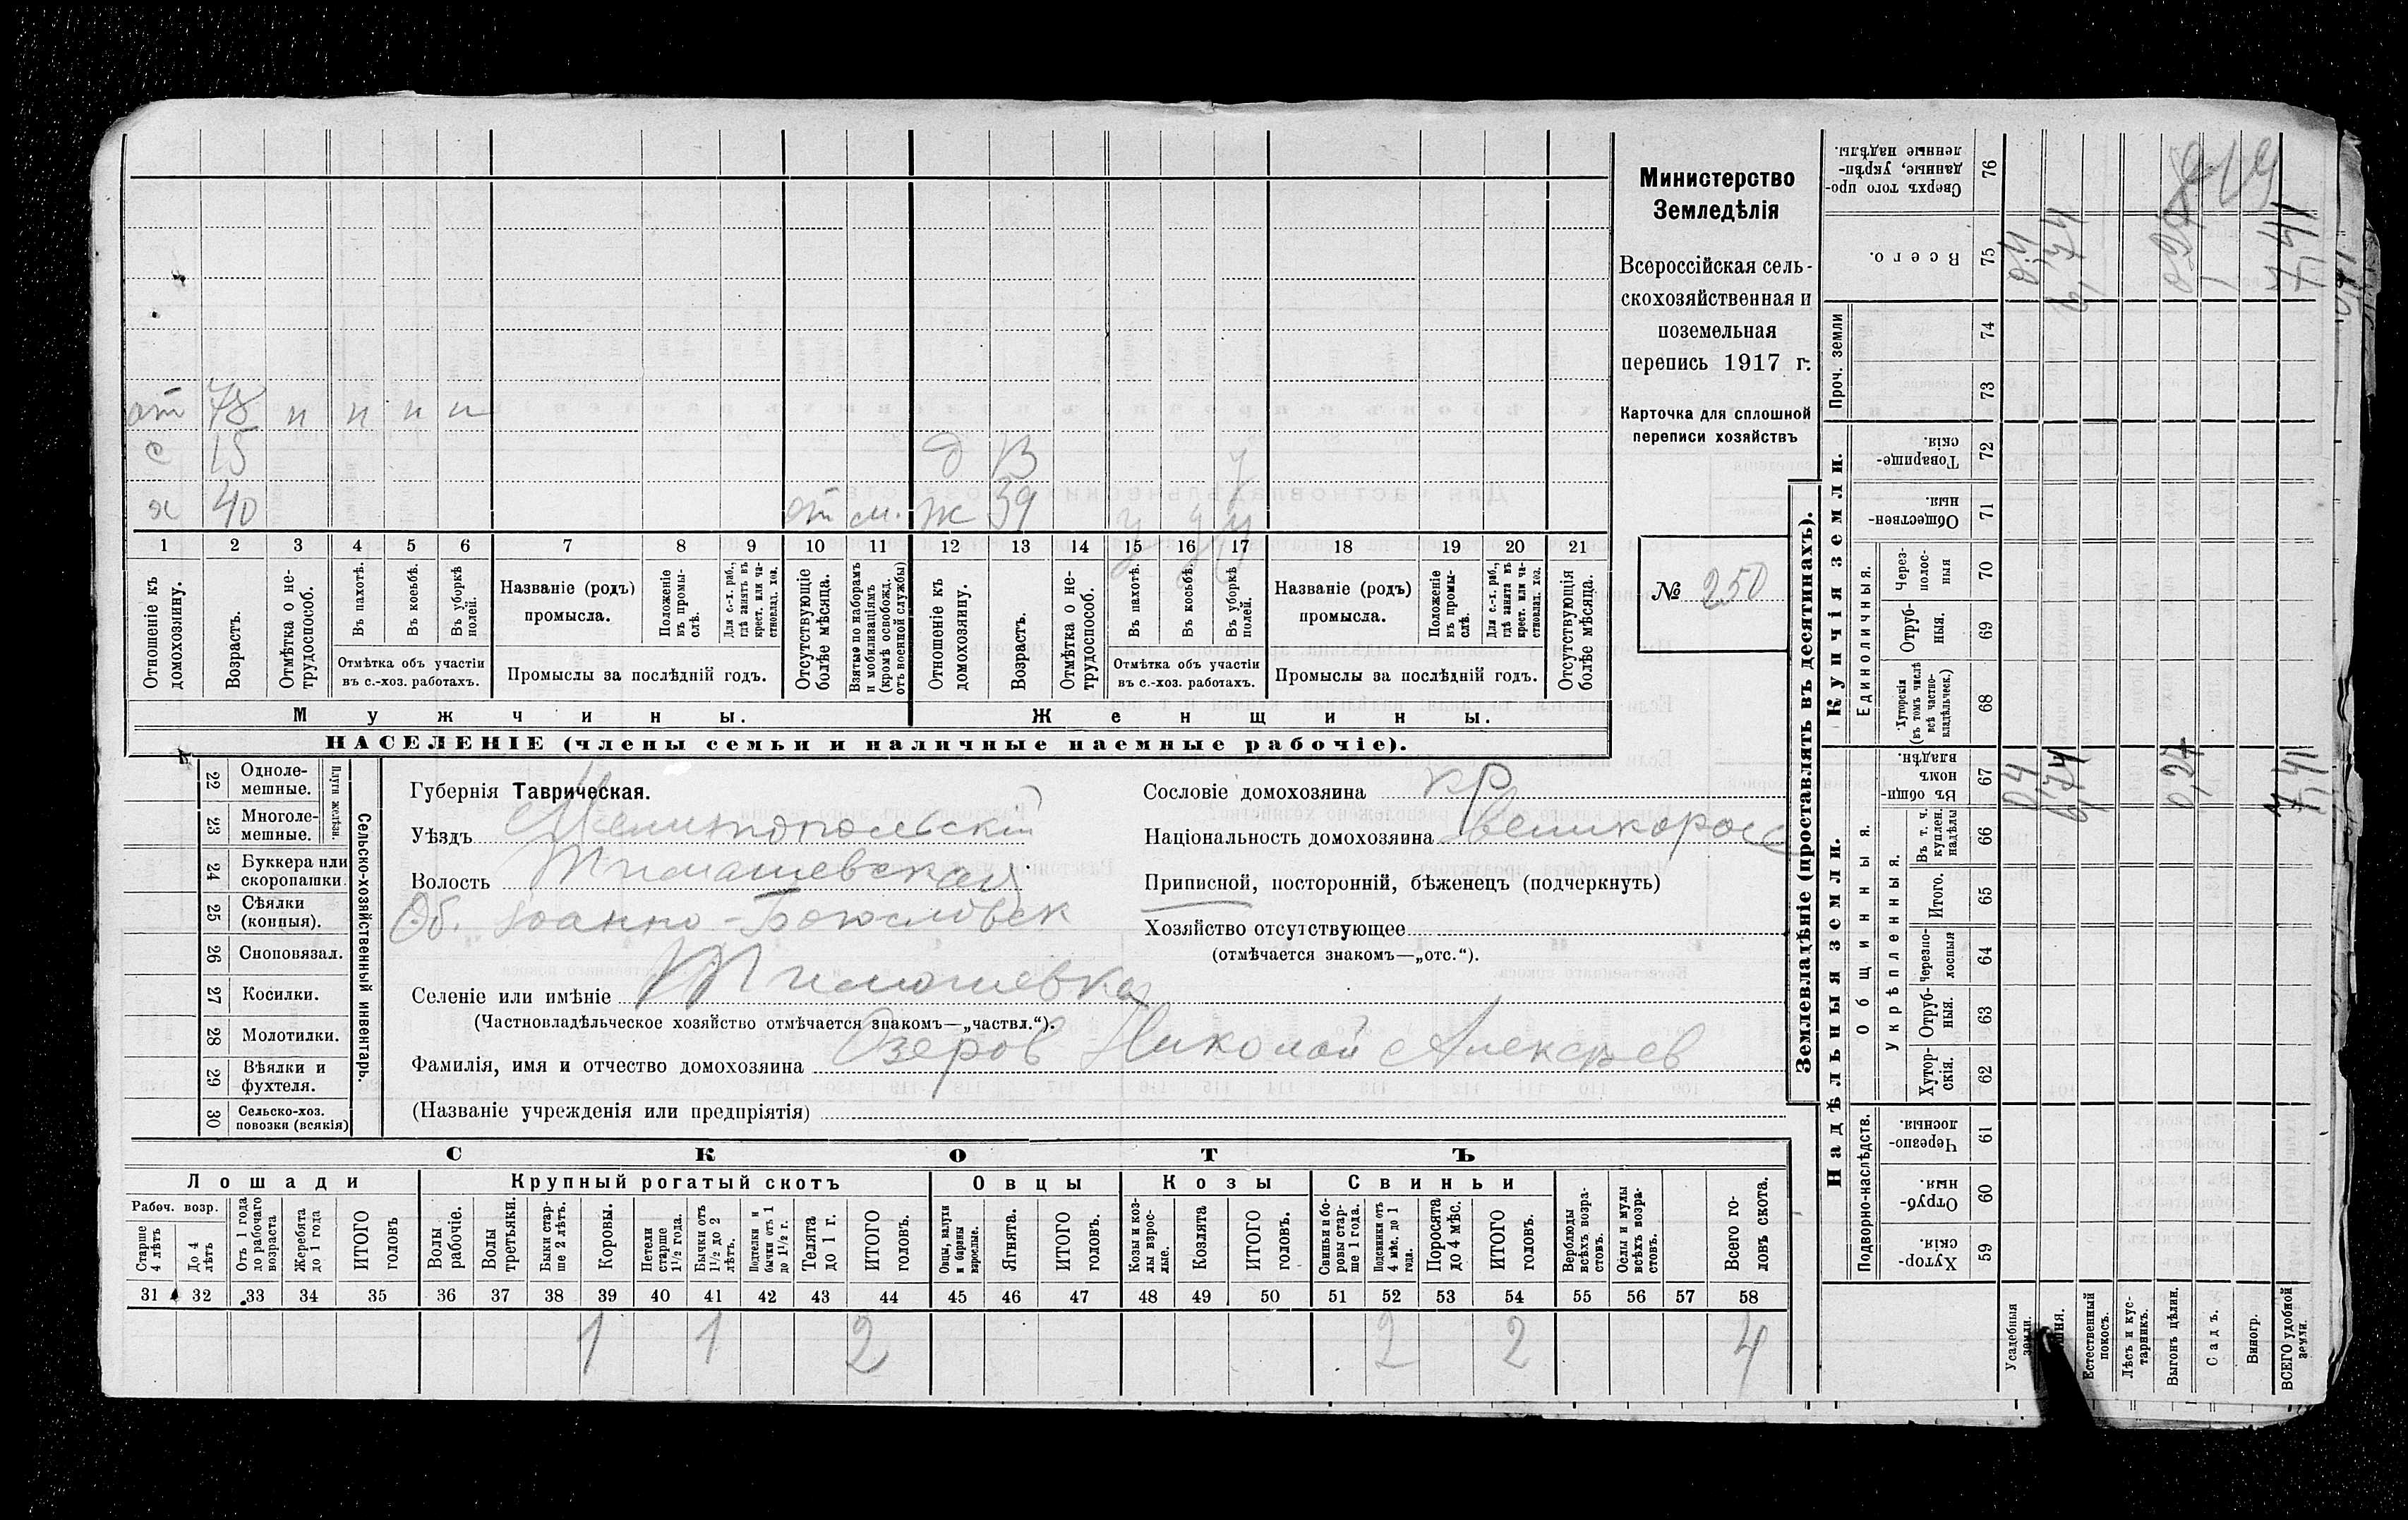 от 78 н н н н
с 15 д 13 у
х 40 от м. ж 39 у у у
1 2 3 4 5 6 7 8 9 10 11 12 13 14 15 16 17 18 19 20 21
Отношеніе къ домохозяину.
Возрастъ.
Отмѣтка о не-трудоспособ.
Въ пахотѣ.
Въ косьбѣ.
Въ уборкѣ полей.
Отмѣтка объ участіи
въ с.-хоз. работахъ.
Названіе (родъ)
промысла.
Положеніе въ промы-слѣ.
Для с.-х. раб., гдѣ занятъ въ крест. или ча-стновлад. хоз.
Промыслы за послѣдній годъ.
Отсутствующіе болѣе мѣсяца.
Взятые по наборамъ и мобилизаціямъ (кромѣ освобожд. отъ военной службы)
Отношеніе къ домохозяину.
Возрастъ.
Отмѣтка о не-трудоспособ.
Въ пахотѣ.
Въ косьбѣ.
Въ уборкѣ полей.
Отмѣтка объ участіи
въ с.-хоз. работахъ.
Названіе (родъ)
промысла.
Положеніе въ промы-слѣ.
Для с.-х. раб., гдѣ занята въ крест. или ча-стновлад. хоз.
Промыслы за послѣдній годъ.
Отсутствующія болѣе мѣсяца.
Мужчины.
Женщины.
НАСЕЛЕНІЕ (члены семьи и наличные наемные рабочіе).
Министерство
Земледѣлія
Всероссійская сель-
скохозяйственная и
поземельная
перепись 1917 г.
Карточка для сплошной
переписи хозяйствъ
№ 250
Сельско-хозяйственный инвентарь.
Плуги желѣзн.
22 Одноле-мешные.
23 Многоле-мешные.
24 Буккера или скоропашки
25 Сѣялки (конныя).
26 Сноповязал.
27 Косилки.
28 Молотилки.
29 Вѣялки и фухтеля.
30 Сельско-хоз. повозки (всякія)
Губернія Таврическая.
Уѣздъ Мелитопольскій
Волость Тимашевская
Об. Іоанно-Богословск
Селеніе или имѣніе Тимошевка
(Частновладѣльческое хозяйство отмѣчается знакомъ—„частвл.“).
Фамилія, имя и отчество домохозяина Озеров Николай Алексеев
(Названіе учрежденія или предпріятія)
Сословіе домохозяина кр
Національность домохозяина Великоросс
Приписной, посторонній, бѣженецъ (подчеркнуть)
Хозяйство отсутствующее
(отмѣчается знакомъ—„отс.“).
СКОТЪ
Лошади
Крупный рогатый скотъ
Овцы
Козы
Свиньи
Рабоч. возр.
Старше 4 лѣтъ
До 4 лѣтъ
Отъ 1 года до рабочаго возраста
Жеребята до 1 года
ИТОГО головъ
Волы рабочіе.
Волы третьяки.
Быки стар-ше 2 лѣтъ.
Коровы.
Нетели старше 1½ года.
Бычки отъ 1½ до 2 лѣтъ.
Подтелки и бычки отъ 1 до 1½ г.
Телята до 1 г.
ИТОГО головъ.
Овцы, валухи и бараны взрослые.
Ягнята.
ИТОГО головъ.
Козы и коз-лы взрос-лые.
Козлята
ИТОГО головъ.
Свиньи и бо-ровы стар-ше 1 года.
Подсвинки отъ 4 мѣс. до 1 года.
Поросята до 4 мѣс.
ИТОГО головъ.
Верблюды всѣхъ возра-стовъ.
Ослы и мулы всѣхъ возра-стовъ.
Всего го-ловъ скота.
31 32 33 34 35 36 37 38 39 40 41 42 43 44 45 46 47 48 49 50 51 52 53 54 55 56 57 58
1 1 2 2 2 4
Землевладѣніе (проставлять въ десятинахъ).
Надѣльныя земли.
Купчія земли.
Проч. земли
Подворно-наслѣдств.
Общинныя.
Укрѣпленныя.
Единоличныя.
Сверхъ того про-данные, укрѣп-ленные надѣлы. 76
Всего. 75
74
73
Товарище-скія. 72
Обществен-ныя. 71
Через-полос-ныя 70
Отруб-ныя. 69
Хуторскія (въ томъ числѣ всѣ частно-владѣльческ.) 68
Въ общи-номъ владѣн. 67
Въ т. ч. куплен. надѣлы 66
Итого. 65
Черезпо-лосныя 64
Отруб-ныя. 63
Хутор-скія. 62
Черезпо-лосныя. 61
Отруб-ныя. 60
Хутор-скія. 59
Усадебныя земли. 0,4
6,74
Естественный покосъ.
Лѣсъ и кус-тарникъ.
Выгонъ цѣлин. 0,27
Садъ.
Виногр.
ВСЕГО удобной земли. 7,41 7,41